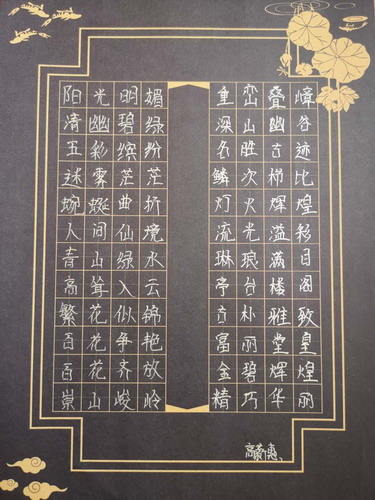 阳光明媚
清幽碧绿
五彩缤纷
迷雾茫茫
蜿蜒曲折
人间仙境
青山绿水
高耸入云
繁花似锦
百花争艳
百花齐放
崇山峻岭
重峦叠嶂
深山幽谷
名胜古迹
鳞次栉比
灯火辉煌
流光溢彩
琳琅满目
亭台楼阁
古朴雅致
富丽堂皇
金碧辉煌
精巧华丽